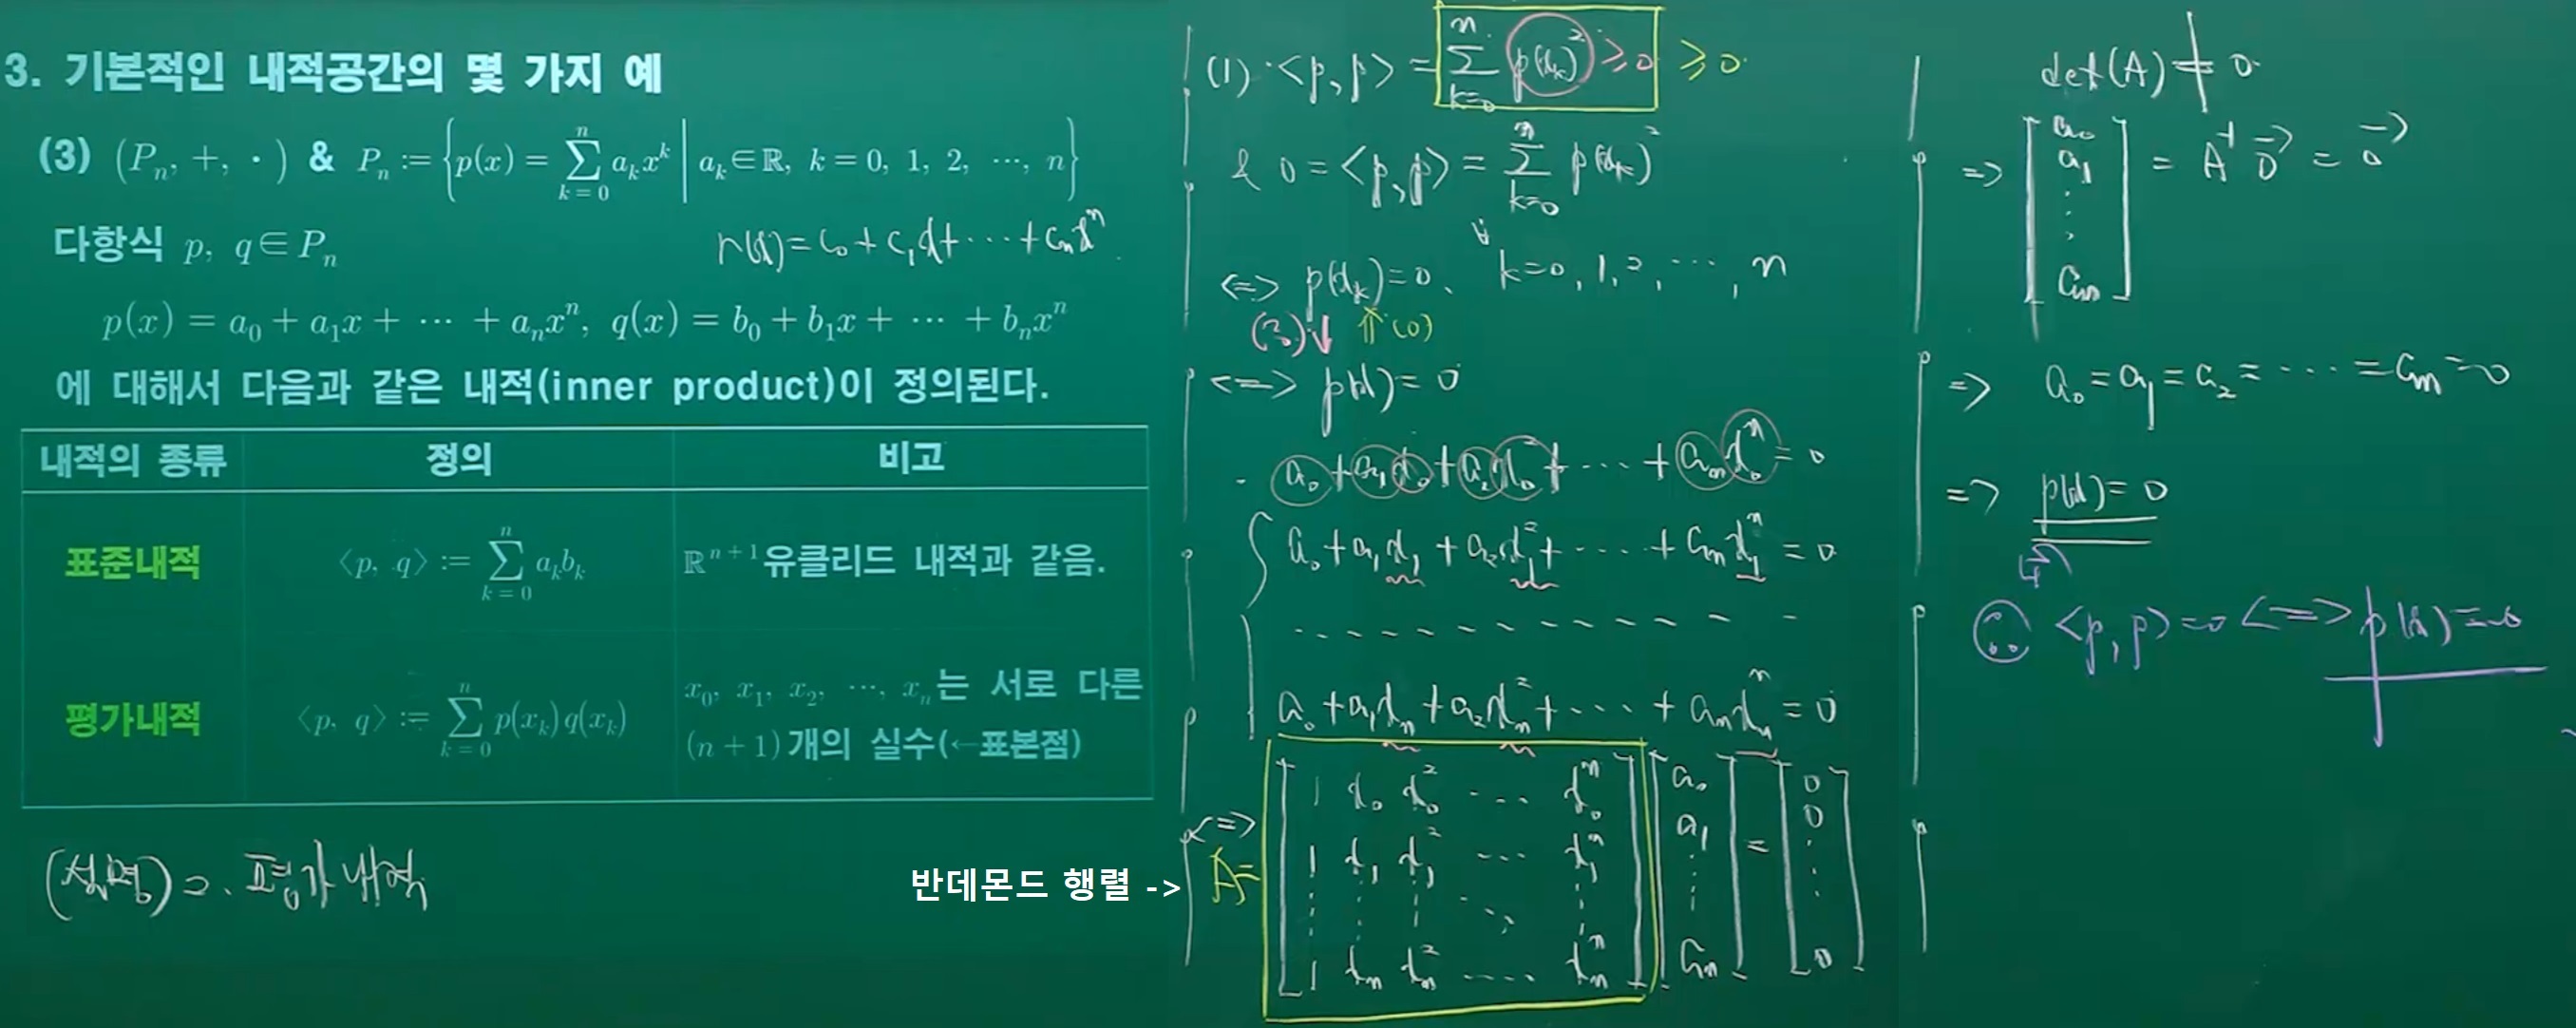 3. 기본적인 내적공간의 몇 가지 예
(3) (Pₙ, +, ·) & Pₙ := {p(x) = ∑_{k=0}^{n} aₖxᵏ | aₖ∈ℝ, k=0, 1, 2, ⋯, n}
다항식 p, q∈Pₙ
r(x)=c₀+c₁x+⋯+cₙxⁿ
p(x) = a₀ + a₁x + ⋯ + aₙxⁿ, q(x) = b₀ + b₁x + ⋯ + bₙxⁿ
에 대해서 다음과 같은 내적(inner product)이 정의된다.
내적의 종류 정의 비고
표준내적 ⟨p, q⟩ := ∑_{k=0}^{n} aₖbₖ ℝⁿ⁺¹유클리드 내적과 같음.
평가내적 ⟨p, q⟩ := ∑_{k=0}^{n} p(xₖ)q(xₖ) x₀, x₁, x₂, ⋯, xₙ는 서로 다른
(n+1)개의 실수(←표본점)
(설명) 2. 평가내적
반데몬드 행렬 ->
(1) <p,p> = ∑_{k=0}^{n} p(xₖ)² ≥0 ≥0
& 0 = <p,p> = ∑_{k=0}^{n} p(xₖ)²
<=> p(xₖ)=0, ∀ k=0, 1, 2, ⋯, n
(3)↓ ⇑(0)
<=> p(x)=0
a₀+a₁x₀+a₂x₀²+⋯+aₙx₀ⁿ=0
a₀+a₁x₁+a₂x₁²+⋯+aₙx₁ⁿ=0
- - - - - - - - - - - - -
a₀+a₁xₙ+a₂xₙ²+⋯+aₙxₙⁿ=0
<=> A= [1 x₀ x₀² ⋯ x₀ⁿ] [a₀] = [0]
[1 x₁ x₁² ⋯ x₁ⁿ] [a₁] [0]
[⋮ ⋮ ⋮ ⋱ ⋮] [⋮] [⋮]
[1 xₙ xₙ² ⋯ xₙⁿ] [aₙ] [0]
det(A) ≠ 0
=> [a₀ a₁ ⋮ aₙ] = A⁻¹ 0⃗ = 0⃗
=> a₀=a₁=a₂=⋯=aₙ=0
=> p(x)=0
∴ <p,p>=0 <=> p(x)=0